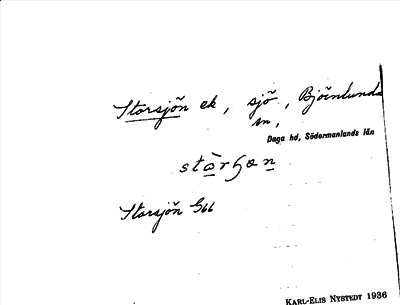 Storsjön ek, sjö, Björnlunda
sn,
Daga hd, Södermanlands län
Storsjön G66
KARL-ELIS NYSTEDT 1936